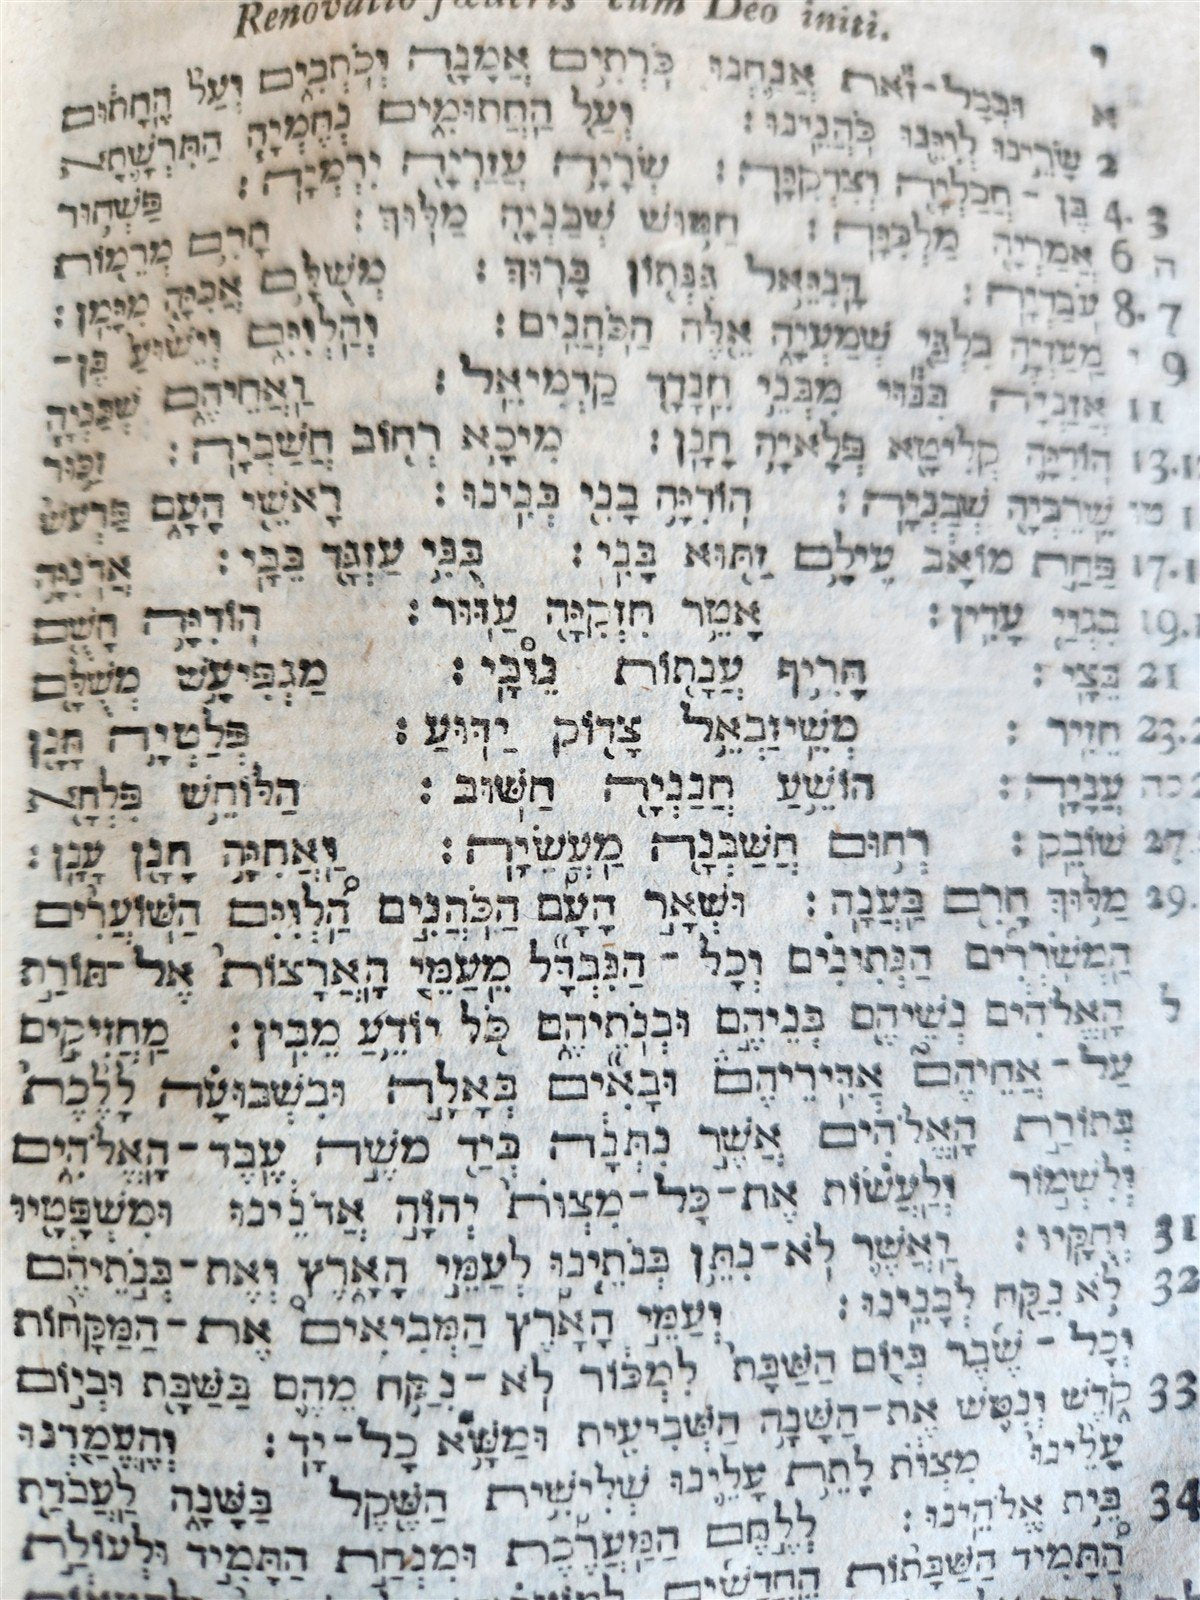 Renovatio fœderis cum Deo initi.
י
א וּבְכָל־זֹאת אֲנַחְנוּ כֹּרְתִים אֲמָנָה וְכֹתְבִים וְעַל הֶחָתוּם
2 שָׂרֵינוּ לְוִיֵּנוּ כֹּהֲנֵינוּ׃ וְעַל הַחֲתוּמִים נְחֶמְיָה הַתִּרְשָׁתָא
3 בֶּן־חֲכַלְיָה וְצִדְקִיָּה׃ שְׂרָיָה עֲזַרְיָה יִרְמְיָה׃ פַּשְׁחוּר
4. אֲמַרְיָה מַלְכִּיָּה׃ חַטּוּשׁ שְׁבַנְיָה מַלּוּךְ׃ חָרִם מְרֵמוֹת
ה 6 עֹבַדְיָה׃ דָּנִיֵּאל גִּנְּתוֹן בָּרוּךְ׃ מְשֻׁלָּם אֲבִיָּה מִיָּמִן׃
7 8. מַעַזְיָה בִלְגַּי שְׁמַעְיָה אֵלֶּה הַכֹּהֲנִים׃ וְהַלְוִיִּם וְיֵשׁוּעַ בֶּן־
9 י אֲזַנְיָה בִּנּוּי מִבְּנֵי חֵנָדָד קַדְמִיאֵל׃ וַאֲחֵיהֶם שְׁבַנְיָה
11 הוֹדִיָּה קְלִיטָא פְּלָאיָה חָנָן׃ מִיכָא רְחוֹב חֲשַׁבְיָה׃ זַכּוּר
13. שֵׁרֵבְיָה שְׁבַנְיָה׃ הוֹדִיָּה בָנִי בְּנִינוּ׃ רָאשֵׁי הָעָם פַּרְעֹשׁ
טו פַּחַת מוֹאָב עֵילָם זַתּוּא בָּנִי׃ בֻּנִּי עַזְגָּד בֵּבָי׃ אֲדֹנִיָּה
17. בִגְוַי עָדִין׃ אָטֵר חִזְקִיָּה עַזּוּר׃ הוֹדִיָּה חָשֻׁם
19. בֵּצָי׃ חָרִיף עֲנָתוֹת נֵוֹבָי׃ מַגְפִּיעָשׁ מְשֻׁלָּם
21 חֵזִיר׃ מְשֵׁיזַבְאֵל צָדוֹק יַדּוּעַ׃ פְּלַטְיָה חָנָן
23. עֲנָיָה׃ הוֹשֵׁעַ חֲנַנְיָה חַשּׁוּב׃ הַלּוֹחֵשׁ פִּלְחָא
כה שׁוֹבֵק׃ רְחוּם חֲשַׁבְנָה מַעֲשֵׂיָה׃ וַאֲחִיָּה חָנָן עָנָן׃
27. מַלּוּךְ חָרִם בַּעֲנָה׃ וּשְׁאָר הָעָם הַכֹּהֲנִים הַלְוִיִּם הַשּׁוֹעֲרִים
29. הַמְשֹׁרְרִים הַנְּתִינִים וְכָל־הַנִּבְדָּל מֵעַמֵּי הָאֲרָצוֹת אֶל־תּוֹרַת
הָאֱלֹהִים נְשֵׁיהֶם בְּנֵיהֶם וּבְנֹתֵיהֶם כֹּל יוֹדֵעַ מֵבִין׃ מַחֲזִיקִים
ל עַל־אֲחֵיהֶם אַדִּירֵיהֶם וּבָאִים בְּאָלָה וּבִשְׁבוּעָה לָלֶכֶת
בְּתוֹרַת הָאֱלֹהִים אֲשֶׁר נִתְּנָה בְּיַד מֹשֶׁה עֶבֶד־הָאֱלֹהִים
וְלִשְׁמוֹר וְלַעֲשׂוֹת אֶת־כָּל־מִצְוֹת יְהוָה אֲדֹנֵינוּ וּמִשְׁפָּטָיו
31 וְחֻקָּיו׃ וַאֲשֶׁר לֹא־נִתֵּן בְּנֹתֵינוּ לְעַמֵּי הָאָרֶץ וְאֶת־בְּנֹתֵיהֶם
32 לֹא נִקַּח לְבָנֵינוּ׃ וְעַמֵּי הָאָרֶץ הַמְבִיאִים אֶת־הַמַּקָּחוֹת
וְכָל־שֶׁבֶר בְּיוֹם הַשַּׁבָּת לִמְכּוֹר לֹא־נִקַּח מֵהֶם בַּשַּׁבָּת וּבְיוֹם
33 קֹדֶשׁ וְנִטֹּשׁ אֶת־הַשָּׁנָה הַשְּׁבִיעִית וּמַשָּׁא כָל־יָד׃ וְהֶעֱמַדְנוּ
עָלֵינוּ מִצְוֹת לָתֵת עָלֵינוּ שְׁלִישִׁית הַשֶּׁקֶל בַּשָּׁנָה לַעֲבֹדַת
34 בֵּית אֱלֹהֵינוּ׃ לְלֶחֶם הַמַּעֲרֶכֶת וּמִנְחַת הַתָּמִיד וּלְעוֹלַת
הַתָּמִיד הַשַּׁבָּתוֹת הֶחֳדָשִׁים